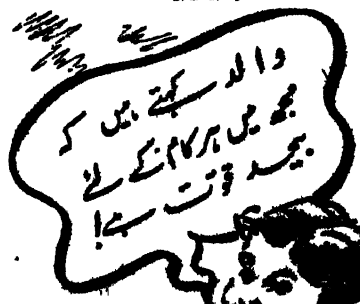 والد کہتے ہیں کہ
مجھ میں ہر کام کے لئے
بیحد قوت ہے!